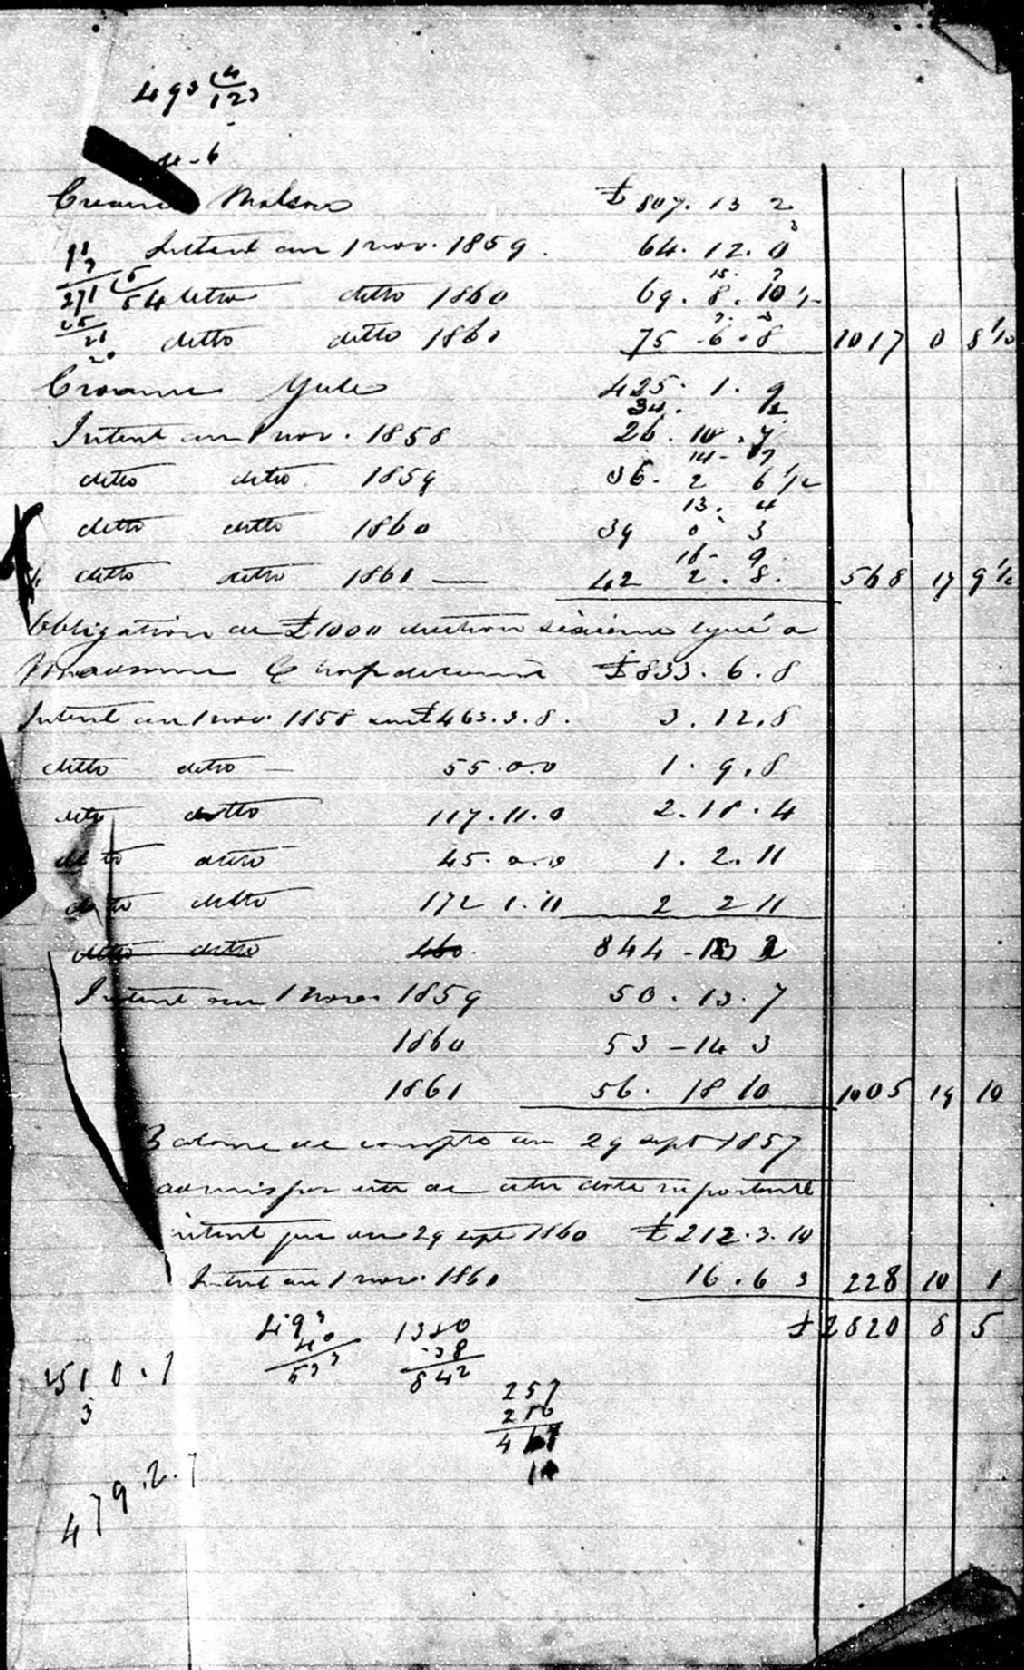 493 (4
123
- 6
Creance Molson £ 807. 13 2
Interet au 1 nov. 1859. 64. 12. 0
271 54 ditto ditto 1860 69. 8. 10 ½
ditto ditto 1860 75 . 6 . 8 1017 0 8 ½
Creance Yule 425. 1. 9
34. ½
Interet au 1 nov. 1858 26. 10. 7
14 - 7
ditto ditto 1859 36. 2 6 ½
13. 4
ditto ditto 1860 39 0 3
16 - 9
ditto ditto 1861 — 42 2. 8. 568 17 9 ½
Obligation de £1000
Madame £833. 6. 8
Interet au 1 nov. 1858 sur £463. 3. 8. 3. 12. 8
ditto ditto — 55. 0. 0 1. 9. 8
ditto ditto 117. 11. 0 2. 18. 4
ditto ditto 45. 0. 0 1. 2. 11
ditto ditto 172 1. 11 2 2 11
ditto ditto 460 844 - 13 2
Interet au 1 Nov. 1859 50. 13. 7
1860 53 - 14 3
1861 56. 18 10 1005 19 10
Balance de compte au 29 sept 1857
admis par de cette date
interet au 29 sept 1860 £ 212. 3. 10
Interet au 1 nov. 1860 16. 6 3 228 10 1
493 1380 £ 2820 8 5
40 38
533 542
51 0. 1
3
257
210
467
10
479. 2. 7